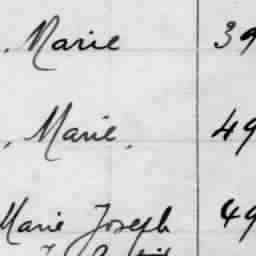 . Marie 39
. Marie. 49
Marie Joseph 49